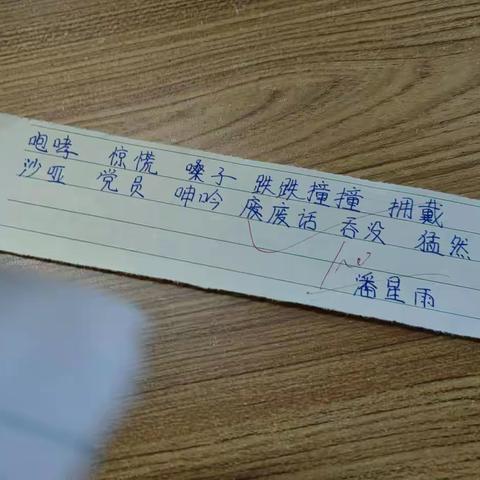 咆哮 惊慌 嗓子 跌跌撞撞 拥戴
沙哑 党员 呻吟 废废话 吞没 猛然
潘星雨